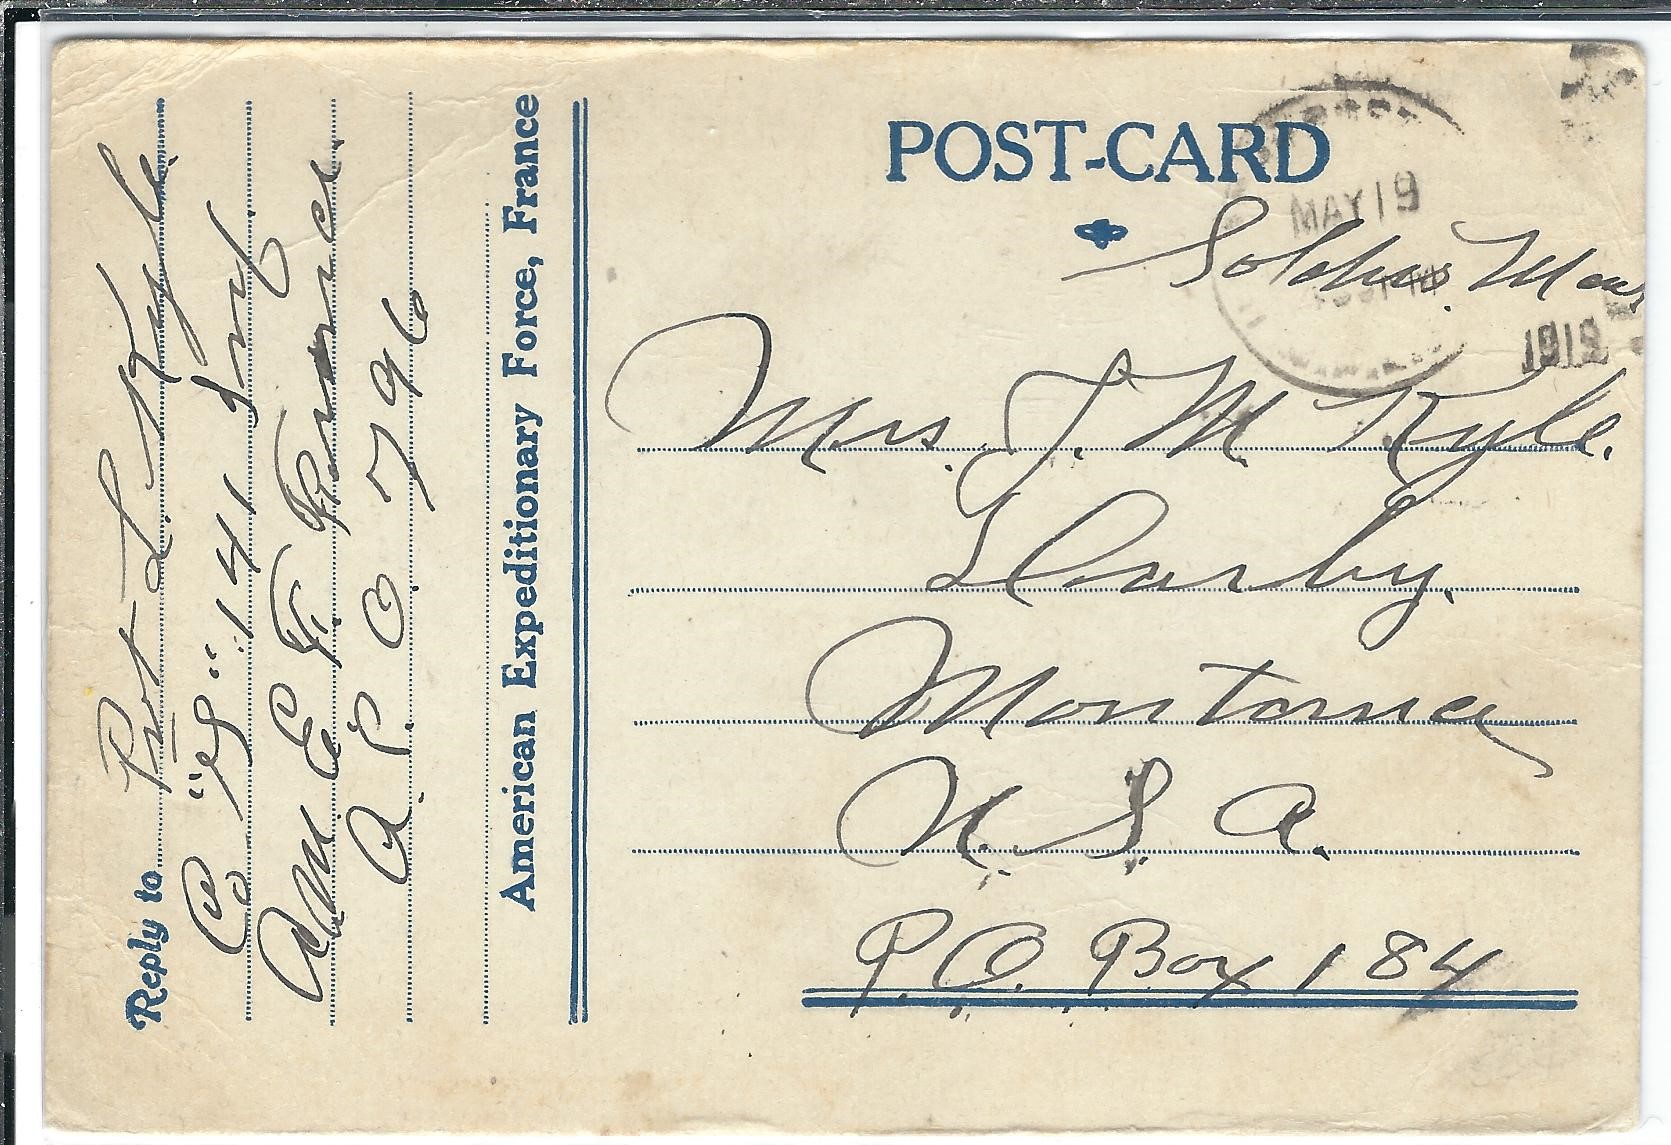 Reply to Pvt L. Kyle.
Co "S" 141 Inf.
Am E F France.
A. P. O. 796
American Expeditionary Force, France
POST-CARD
MAY 19
Soldiers Mail
1919
Mrs. J. M. Kyle.
Darby.
Montana
U. S. A.
P.O. Box 184